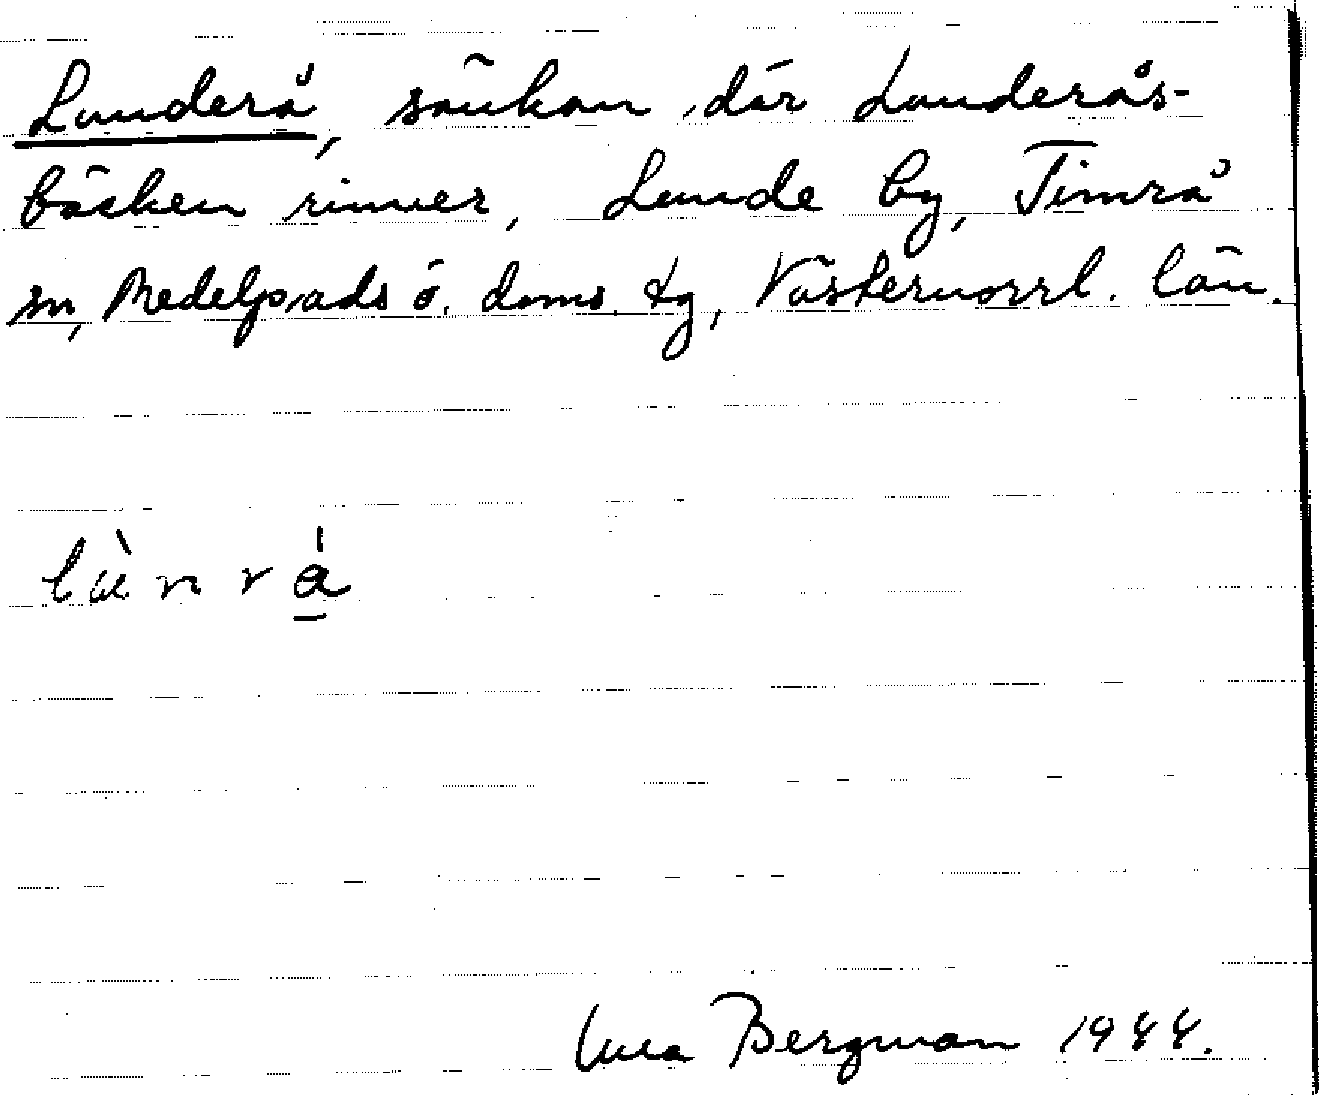 Lunderå, sänkan, där Lunderås-
bäcken rinner, Lunde by, Timrå
sn, Medelpads ö. doms. tg, Västernorrl. län.
lùnrá̱
Bergman 1944.